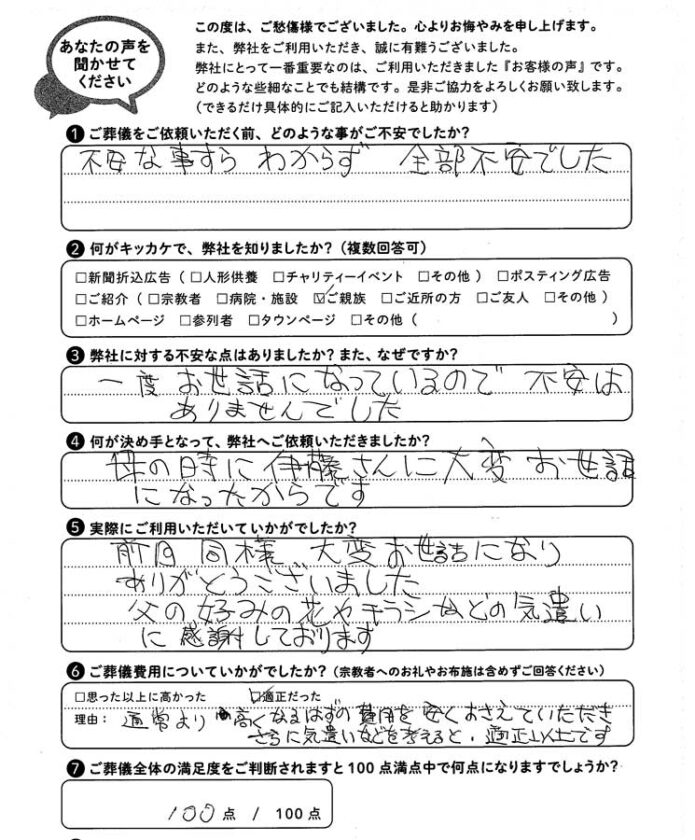 あなたの声を
聞かせて
ください
この度は、ご愁傷様でございました。心よりお悔やみを申し上げます。
また、弊社をご利用いただき、誠に有難うございました。
弊社にとって一番重要なのは、ご利用いただきました『お客様の声』です。
どのような些細なことでも結構です。是非ご協力をよろしくお願い致します。
（できるだけ具体的にご記入いただけると助かります）
❶ご葬儀をご依頼いただく前、どのような事がご不安でしたか？
不安な事すら わからず 全部不安でした
❷何がキッカケで、弊社を知りましたか？（複数回答可）
□新聞折込広告（□人形供養 □チャリティーイベント □その他）□ポスティング広告
□ご紹介（□宗教者 □病院・施設 ☑ご親族 □ご近所の方 □ご友人 □その他）
□ホームページ □参列者 □タウンページ □その他（ ）
❸弊社に対する不安な点はありましたか？また、なぜですか？
一度 お世話になっているので 不安は
ありませんでした
❹何が決め手となって、弊社へご依頼いただきましたか？
母の時に 伊藤さんに大変 お世話
になったからです
❺実際にご利用いただいていかがでしたか？
前回 同様 大変お世話になり
ありがとうございました
父の好みの花やチラシなどの気遣い
に感謝しております
❻ご葬儀費用についていかがでしたか？（宗教者へのお礼やお布施は含めずご回答ください）
□思った以上に高かった ☑適正だった
理由： 通常より 高くなるはずの費用を安くおさえていただき
さらに気遣いなどを考えると、適正以上です
❼ご葬儀全体の満足度をご判断されますと100点満点中で何点になりますでしょうか？
100点 / 100点